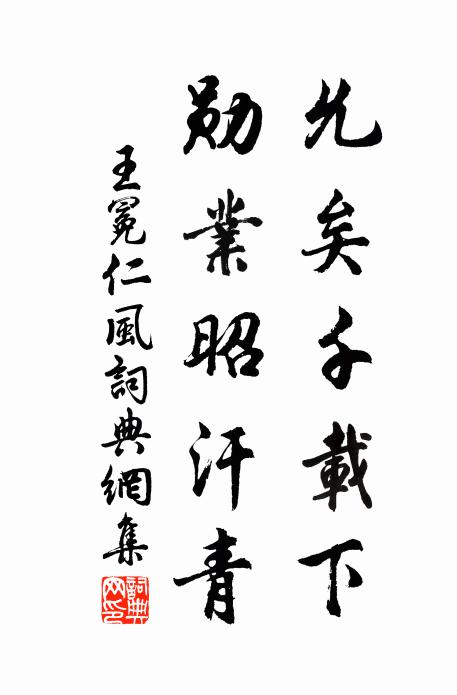 允矣千載下
勛業昭汗青
王冕仁風詞典網集
詞典網印